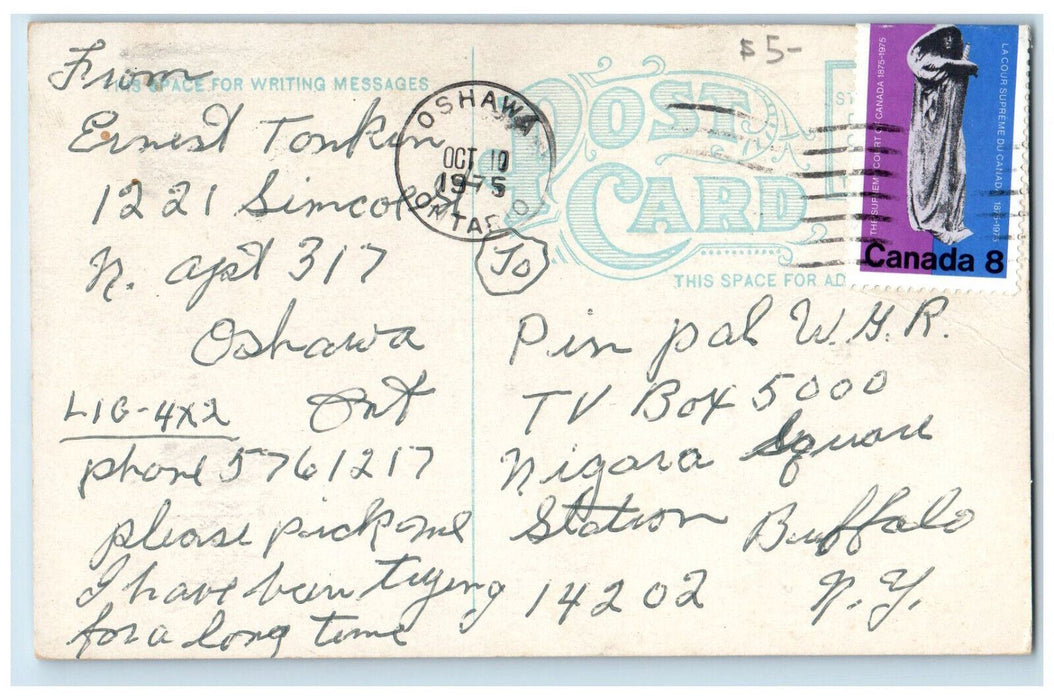 From
THIS SPACE FOR WRITING MESSAGES
Ernest Tonkin
1221 Simcoe St
N. apt 317
Oshawa
Ont
LIG-4X2
phone 5761217
please pick me
I have been trying
for a long time
OSHAWA
OCT 10
1975
ONTARIO
$5-
POST
CARD
THIS SPACE FOR AD
THE SUPREME COURT OF CANADA 1875-1975
LA COUR SUPRÊME DU CANADA 1875-1975
Canada 8
To
Pin pal W.G.R.
TV Box 5000
Nigara Square
Station Buffalo
14202 N.Y.